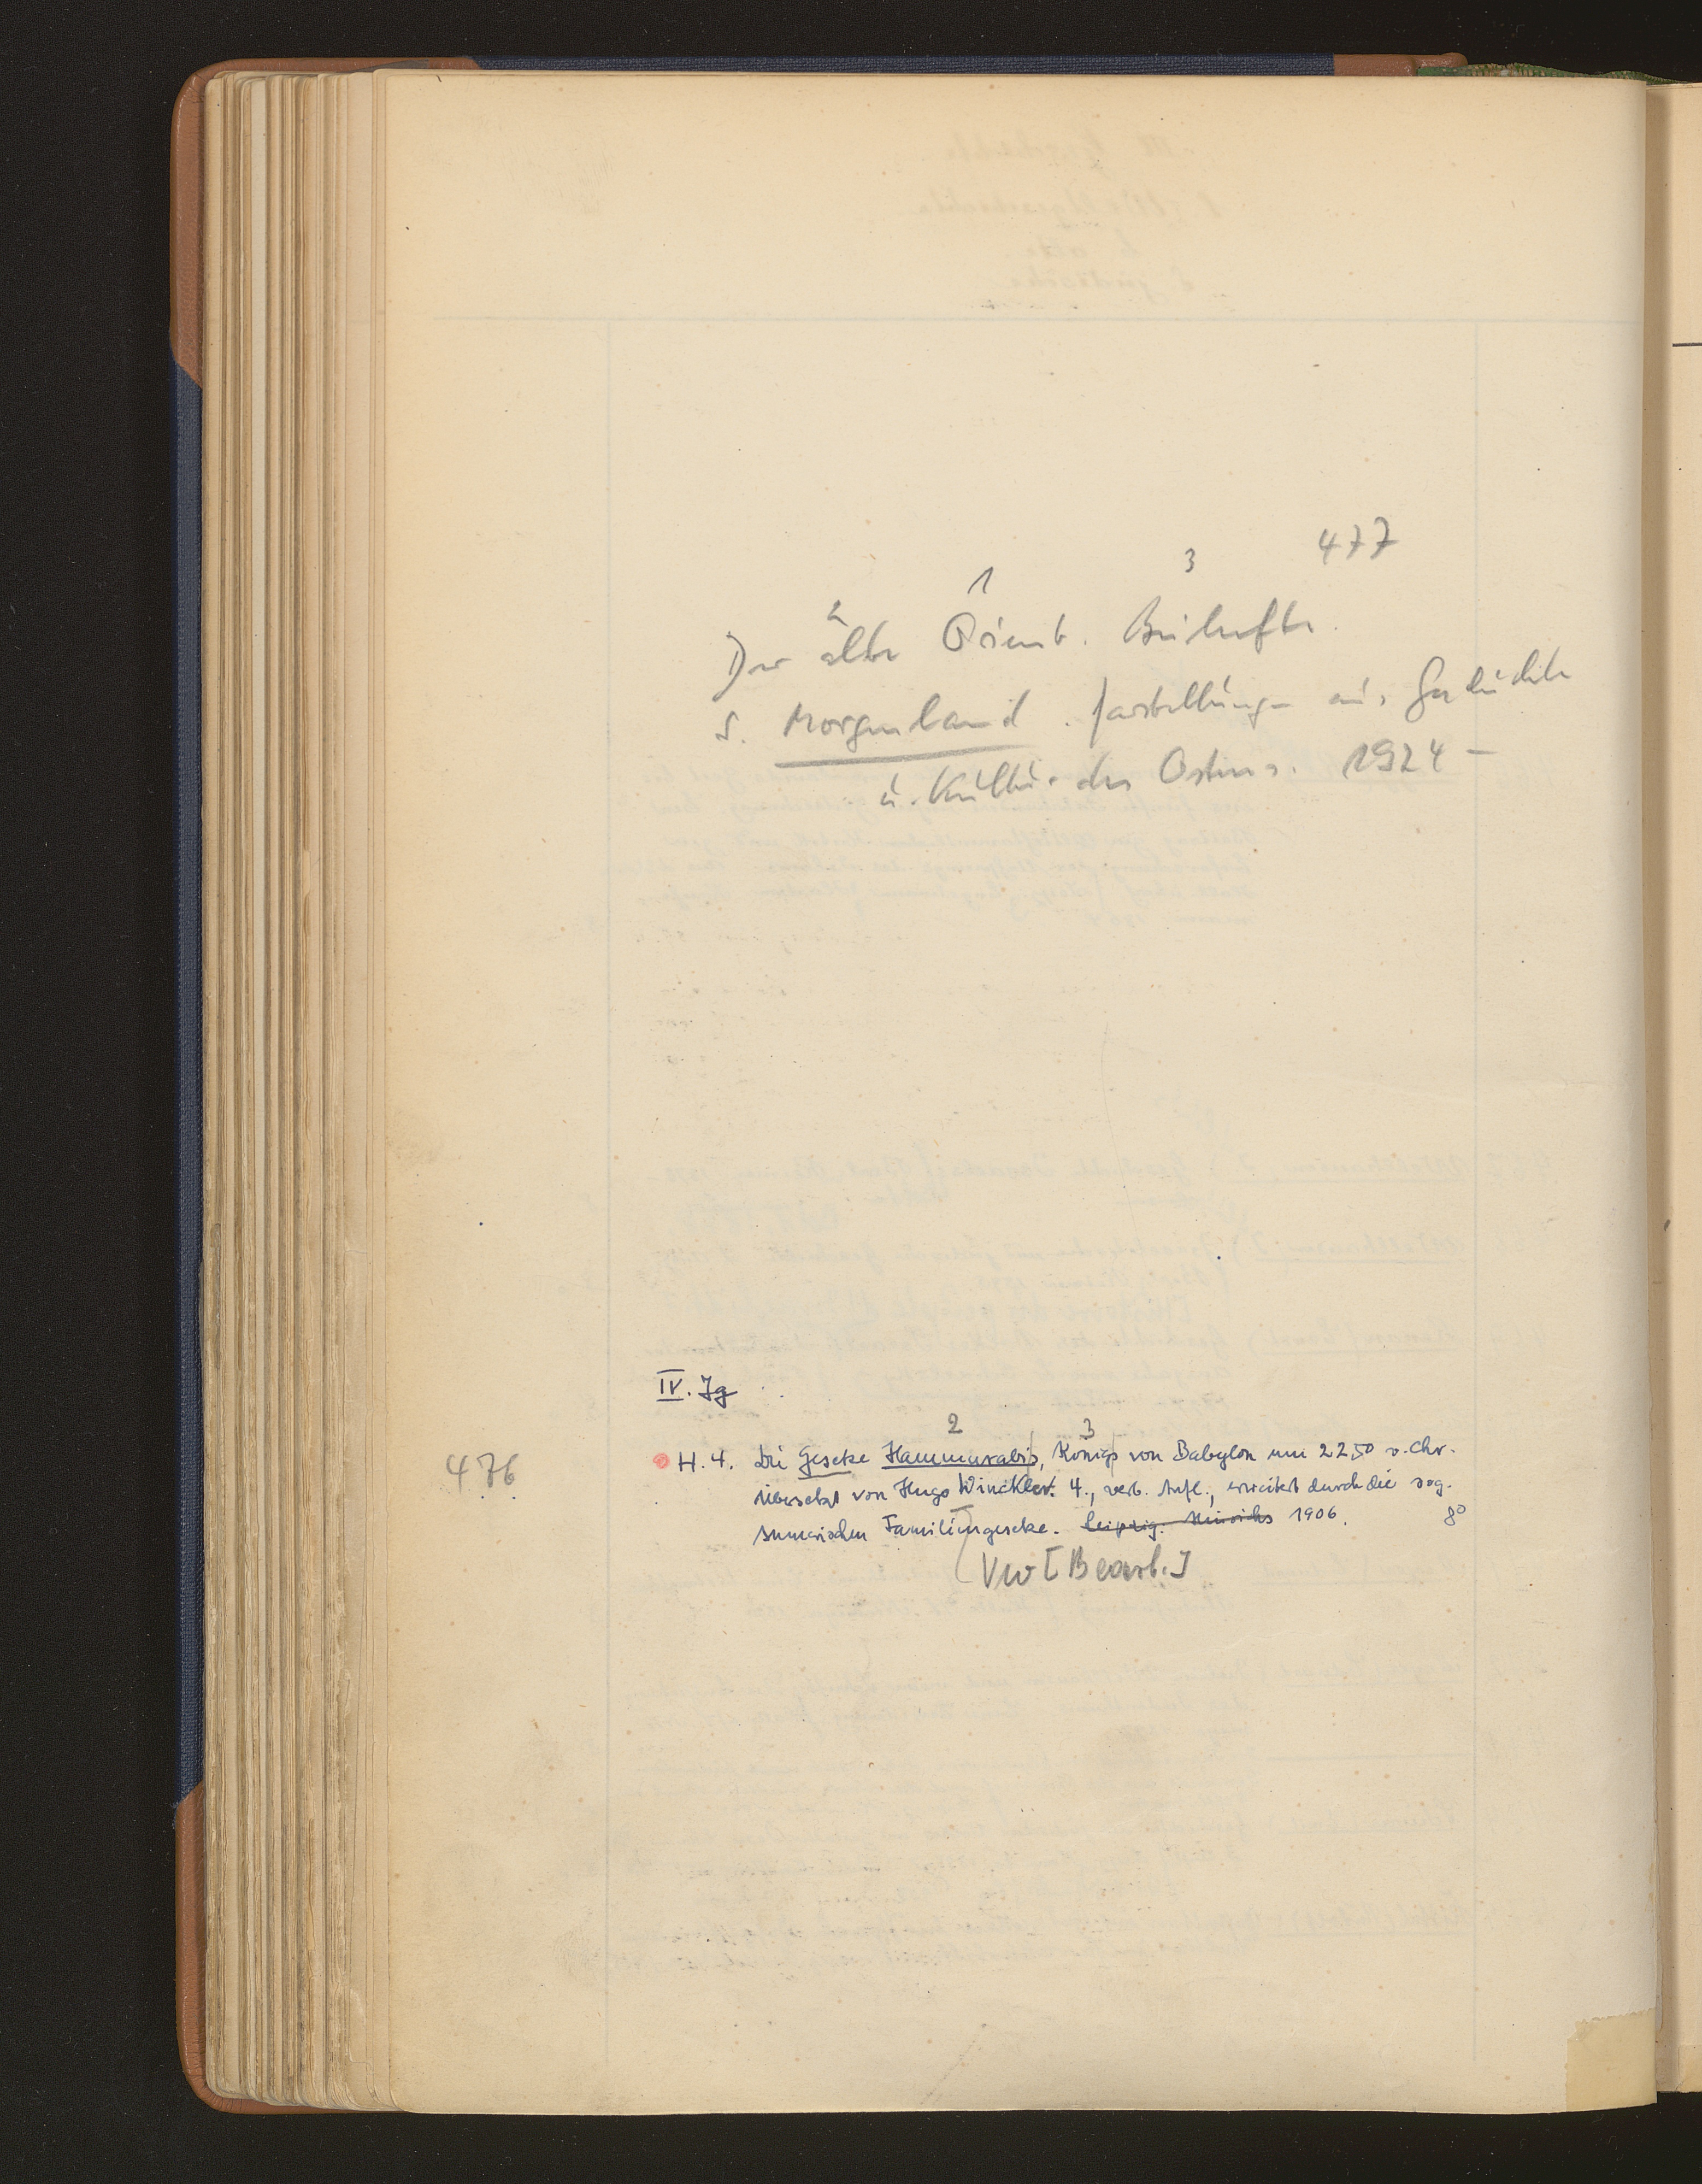 477
2 1 3
Der alte Orient. Beihefte.
s. Morgenland. Darstellungen aus Geschichte
u. Kultur des Ostens. 1924 –
IV. Jg
2 3
476 H. 4. Die Gesetze Hammurabis, Königs von Babylon um 2250 v. Chr.
Übersetzt von Hugo Winckler. 4., verb. Aufl., erweitert durch die sog.
sumerischen Familiengesetze. Leipzig. Hinrichs 1906. 8°
Vw [Bearb.]